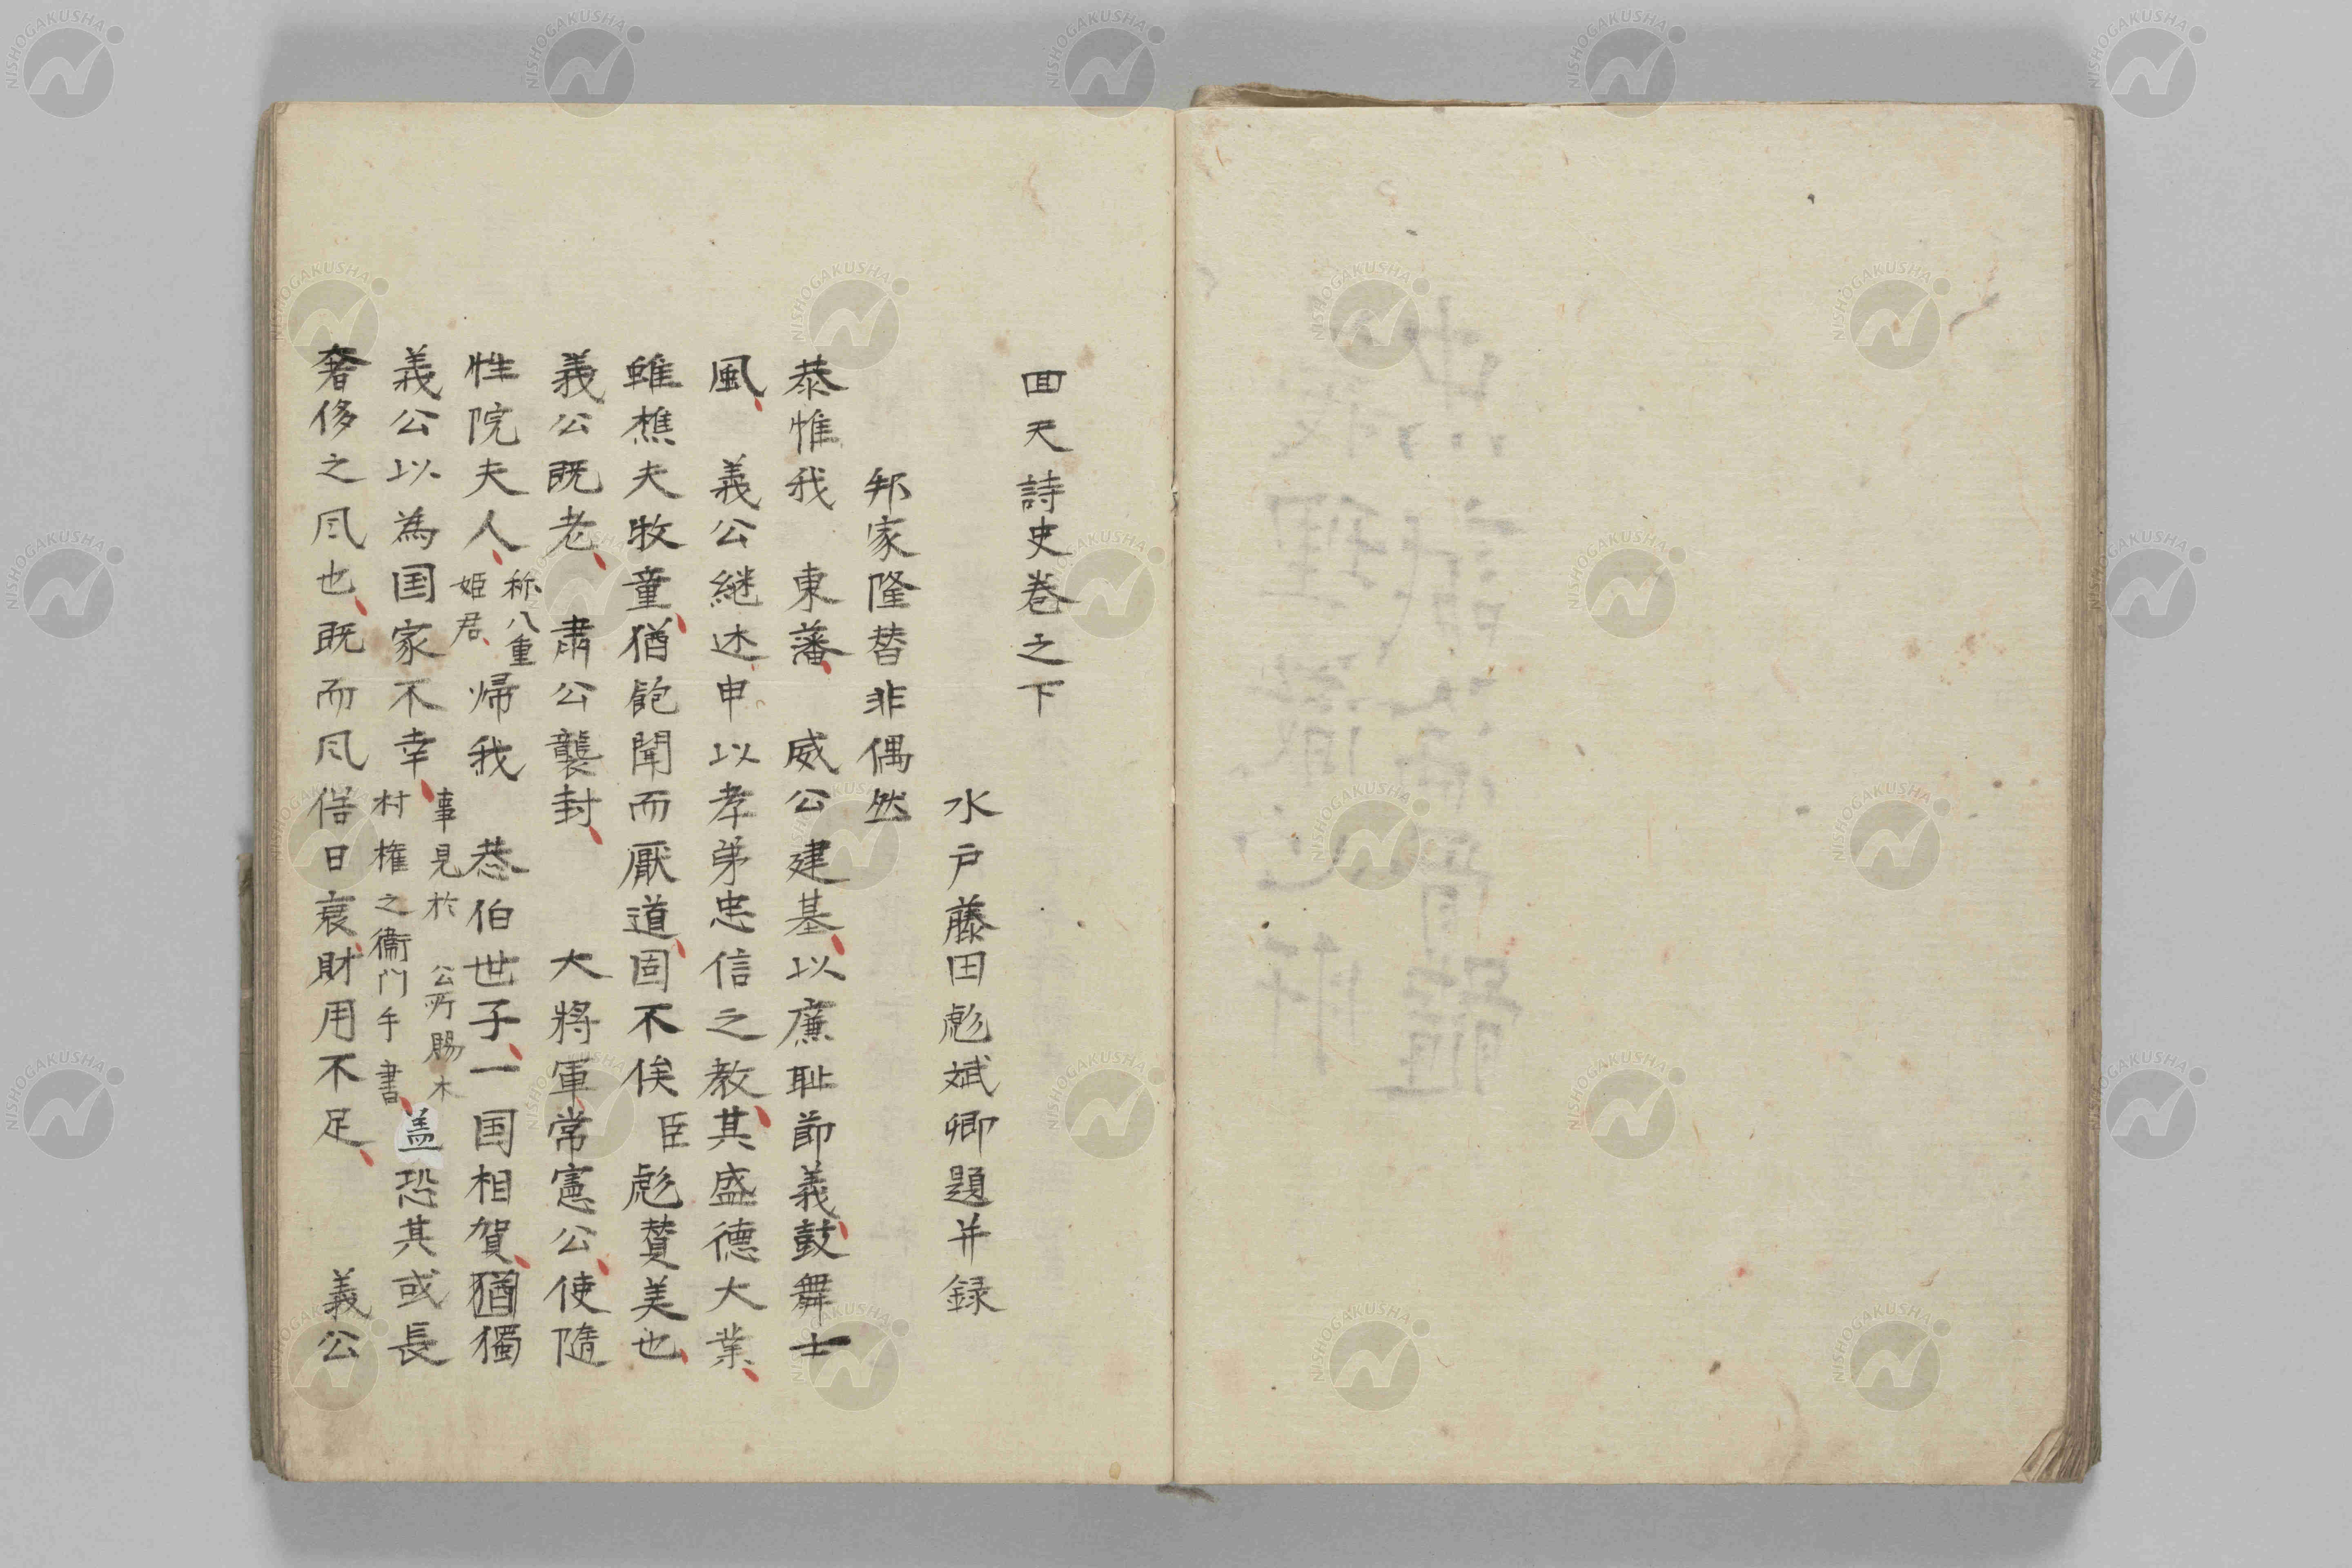 回天詩史巻之下
水戸藤田彪斌卿題并録
邦家隆替非偶然
恭惟我　東藩、威公建基、以廉恥節義、鼓舞士
風、　義公継述、申以孝弟忠信之教、其盛徳大業、
雖樵夫牧童、猶飽聞而厭道、固不俟臣彪賛美也、
義公既老、　肅公襲封、　大將軍常憲公、使隨
性院夫人、称八重姫君、帰我　恭伯世子、一国相賀、猶獨
義公以為国家不幸、事見於　公所賜木村権之衛門手書、盖恐其或長
奢侈之風也、既而風俗日衰、財用不足、　義公
NISHOGAKUSHA